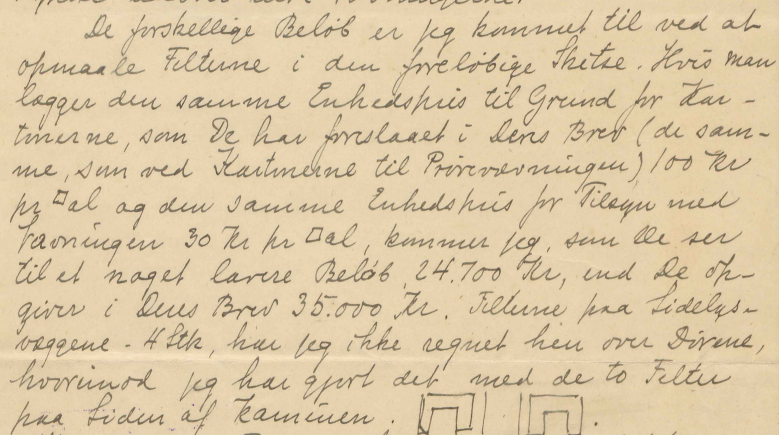 De forskellige Beløb er jeg kommet til ved at
opmaale Felterne i den foreløbige Skitse. Hvis man
lægger den samme Enhedspris til Grund for Kar-
tonerne, som De har foreslaaet i Deres Brev (de sam-
me, som ved Kartonerne til Prøvevævningen) 100 Kr
pr □al og den samme Enhedspris for Tilsyn med
Vævningen 30 Kr pr □al, kommer jeg, som De ser
til et noget lavere Beløb 24.700 Kr, end De op-
giver i Deres Brev 35.000 Kr. Felterne paa Sidelys-
væggene - 4 Stk, har jeg ikke regnet hen over Dørene,
hvorimod jeg har gjort det med de to Felter
paa Siden af Kaminen.